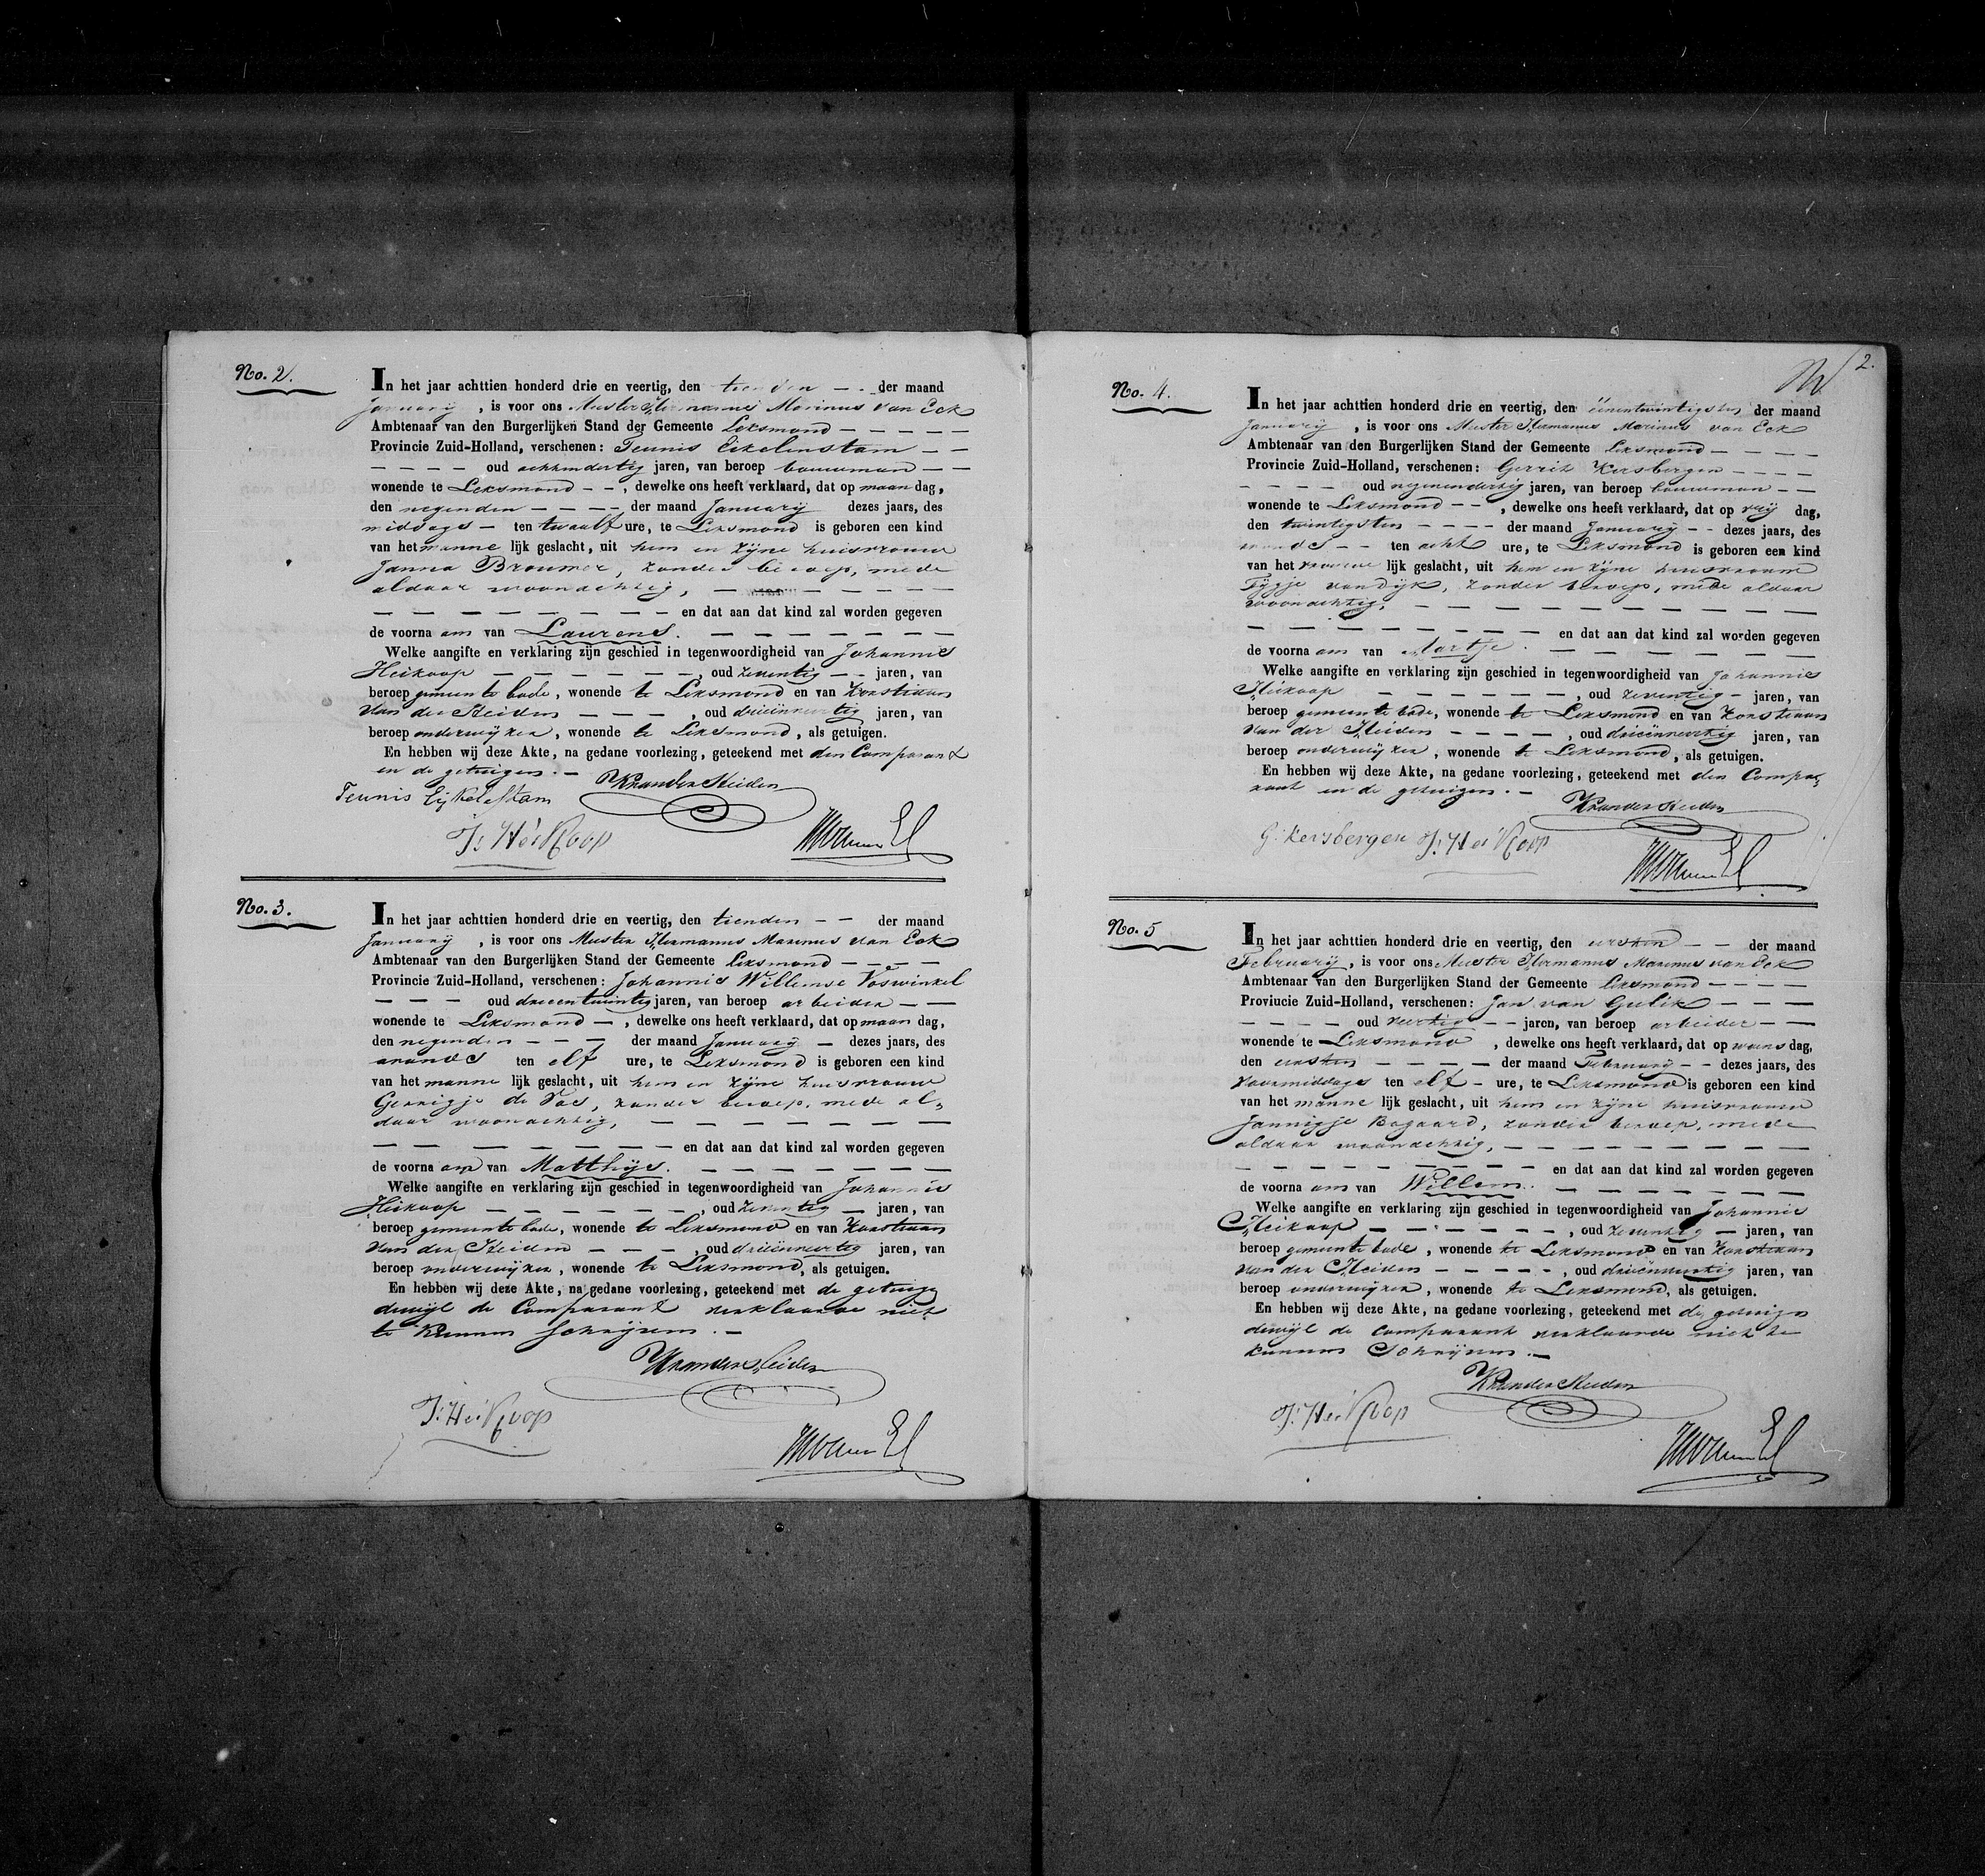 No. 2.
In het jaar achttien honderd drie en veertig, den tienden — . der maand
January , is voor ons Meester Hermannus Marinus van Eck
Ambtenaar van den Burgerlijken Stand der Gemeente Leksmond — — — — —
Provincie Zuid-Holland, verschenen: Teunis Eikelenstam — —
— — — — oud achtendertig jaren, van beroep bouwman — —
wonende te Leksmond — — , dewelke ons heeft verklaard, dat op maan dag,
den negenden — — — — der maand January dezes jaars, des
middags — ten twaalf ure, te Leksmond is geboren een kind
van het manne lijk geslacht, uit hem en zyne huisvrouw
Janna Brouwer, zonder beroep, mede
aldaar woonachtig, — — — — — —
— — — — — — — — en dat aan dat kind zal worden gegeven
de voorna am van Laurens. — — — — — — —
Welke aangifte en verklaring zijn geschied in tegenwoordigheid van Johannis
Heikoop — — — — — — , oud zeventig — — jaren, van
beroep gemeente bode, wonende te Leksmond en van Korstiaan
van der Heiden — — — — , oud drieënveertig jaren, van
beroep onderwyzer, wonende te Leksmond, als getuigen.
En hebben wij deze Akte, na gedane voorlezing, geteekend met den Comparant
en de getuigen. —
Teunis Eykelestam KvanderHeiden
J: HeiKoop
HMvanEck
No. 3.
In het jaar achttien honderd drie en veertig, den tienden — — der maand
January , is voor ons Meester Hermannus Marinus van Eck
Ambtenaar van den Burgerlijken Stand der Gemeente Leksmond — — — —
Provincie Zuid-Holland, verschenen: Johannis Willemse Voswinkel
— — — oud drieentwintig jaren, van beroep arbeider — —
wonende te Leksmond — , dewelke ons heeft verklaard, dat op maan dag,
den negenden — — — der maand January — dezes jaars, des
avonds ten elf ure, te Leksmond is geboren een kind
van het manne lijk geslacht, uit hem en zyne huisvrouw
Gerrigje de Vos, zonder beroep, mede al„
daar woonachtig, — — — — — — —
— — — — — — — — en dat aan dat kind zal worden gegeven
de voorna am van Matthys. — — — — — — —
Welke aangifte en verklaring zijn geschied in tegenwoordigheid van Johannis
Heikoop — — — — — — , oud zeventig — jaren, van
beroep gemeente bode, wonende te Leksmond en van Korstiaan
van der Heiden — — — , oud drieënveertig jaren, van
beroep onderwyzer, wonende te Leksmond, als getuigen.
En hebben wij deze Akte, na gedane voorlezing, geteekend met de getuigen
dewyl de Comparant verklaarde niet
te kunnen schryven. —
KvanderHeiden
J: HeiKoop
HMvanEck
2.
No. 4.
In het jaar achttien honderd drie en veertig, den éénentwintigsten der maand
January , is voor ons Meester Hermannus Marinus van Eck
Ambtenaar van den Burgerlijken Stand der Gemeente Leksmond — — — — —
Provincie Zuid-Holland, verschenen: Gerrit Kersbergen — — — —
— — — — — oud negenendertig jaren, van beroep bouwman — —
wonende te Leksmond — — , dewelke ons heeft verklaard, dat op vry dag,
den twintigsten — — — — der maand January — — dezes jaars, des
avonds — — ten acht ure, te Leksmond is geboren een kind
van het vrouwe lijk geslacht, uit hem en zyne huisvrouw
Tygje van Dyk, zonder beroep, mede aldaar
woonachtig, — — — — — — — — —
— — — — — — — — en dat aan dat kind zal worden gegeven
de voorna am van Aartje. — — — — — — —
Welke aangifte en verklaring zijn geschied in tegenwoordigheid van Johannis
Heikoop — — — — — — , oud zeventig — jaren, van
beroep gemeente bode, wonende te Leksmond en van Korstiaan
van der Heiden — — — — , oud drieënveertig jaren, van
beroep onderwyzer, wonende te Leksmond, als getuigen.
En hebben wij deze Akte, na gedane voorlezing, geteekend met den Compa„
rant en de getuigen. —
KvanderHeiden
G: Kersbergen J: HeiKoop
HMvanEck
No. 5
In het jaar achttien honderd drie en veertig, den eersten — — der maand
February, is voor ons Meester Hermannus Marinus van Eck
Ambtenaar van den Burgerlijken Stand der Gemeente Leksmond — — — —
Provincie Zuid-Holland, verschenen: Jan van Gulik — — — —
— — — — oud veertig — — jaren, van beroep arbeider — —
wonende te Leksmond , dewelke ons heeft verklaard, dat op woens dag,
den eersten — — — — der maand February — — dezes jaars, des
voormiddags ten elf — ure, te Leksmond is geboren een kind
van het manne lijk geslacht, uit hem en zyne huisvrouw
Jannigje Bogaard, zonder beroep, mede
aldaar woonachtig, — — — — — — —
— — — — — — — — en dat aan dat kind zal worden gegeven
de voorna am van Willem. — — — — — — —
Welke aangifte en verklaring zijn geschied in tegenwoordigheid van Johannis
Heikoop — — — — — — , oud zeventig — jaren, van
beroep gemeente bode, wonende te Leksmond en van Korstiaan
van der Heiden — — — — — , oud drieënveertig jaren, van
beroep onderwyzer, wonende te Leksmond, als getuigen.
En hebben wij deze Akte, na gedane voorlezing, geteekend met de getuigen
dewyl de comparant verklaarde niet te
kunnen schryven. —
KvanderHeiden
J: HeiKoop
HMvanEck